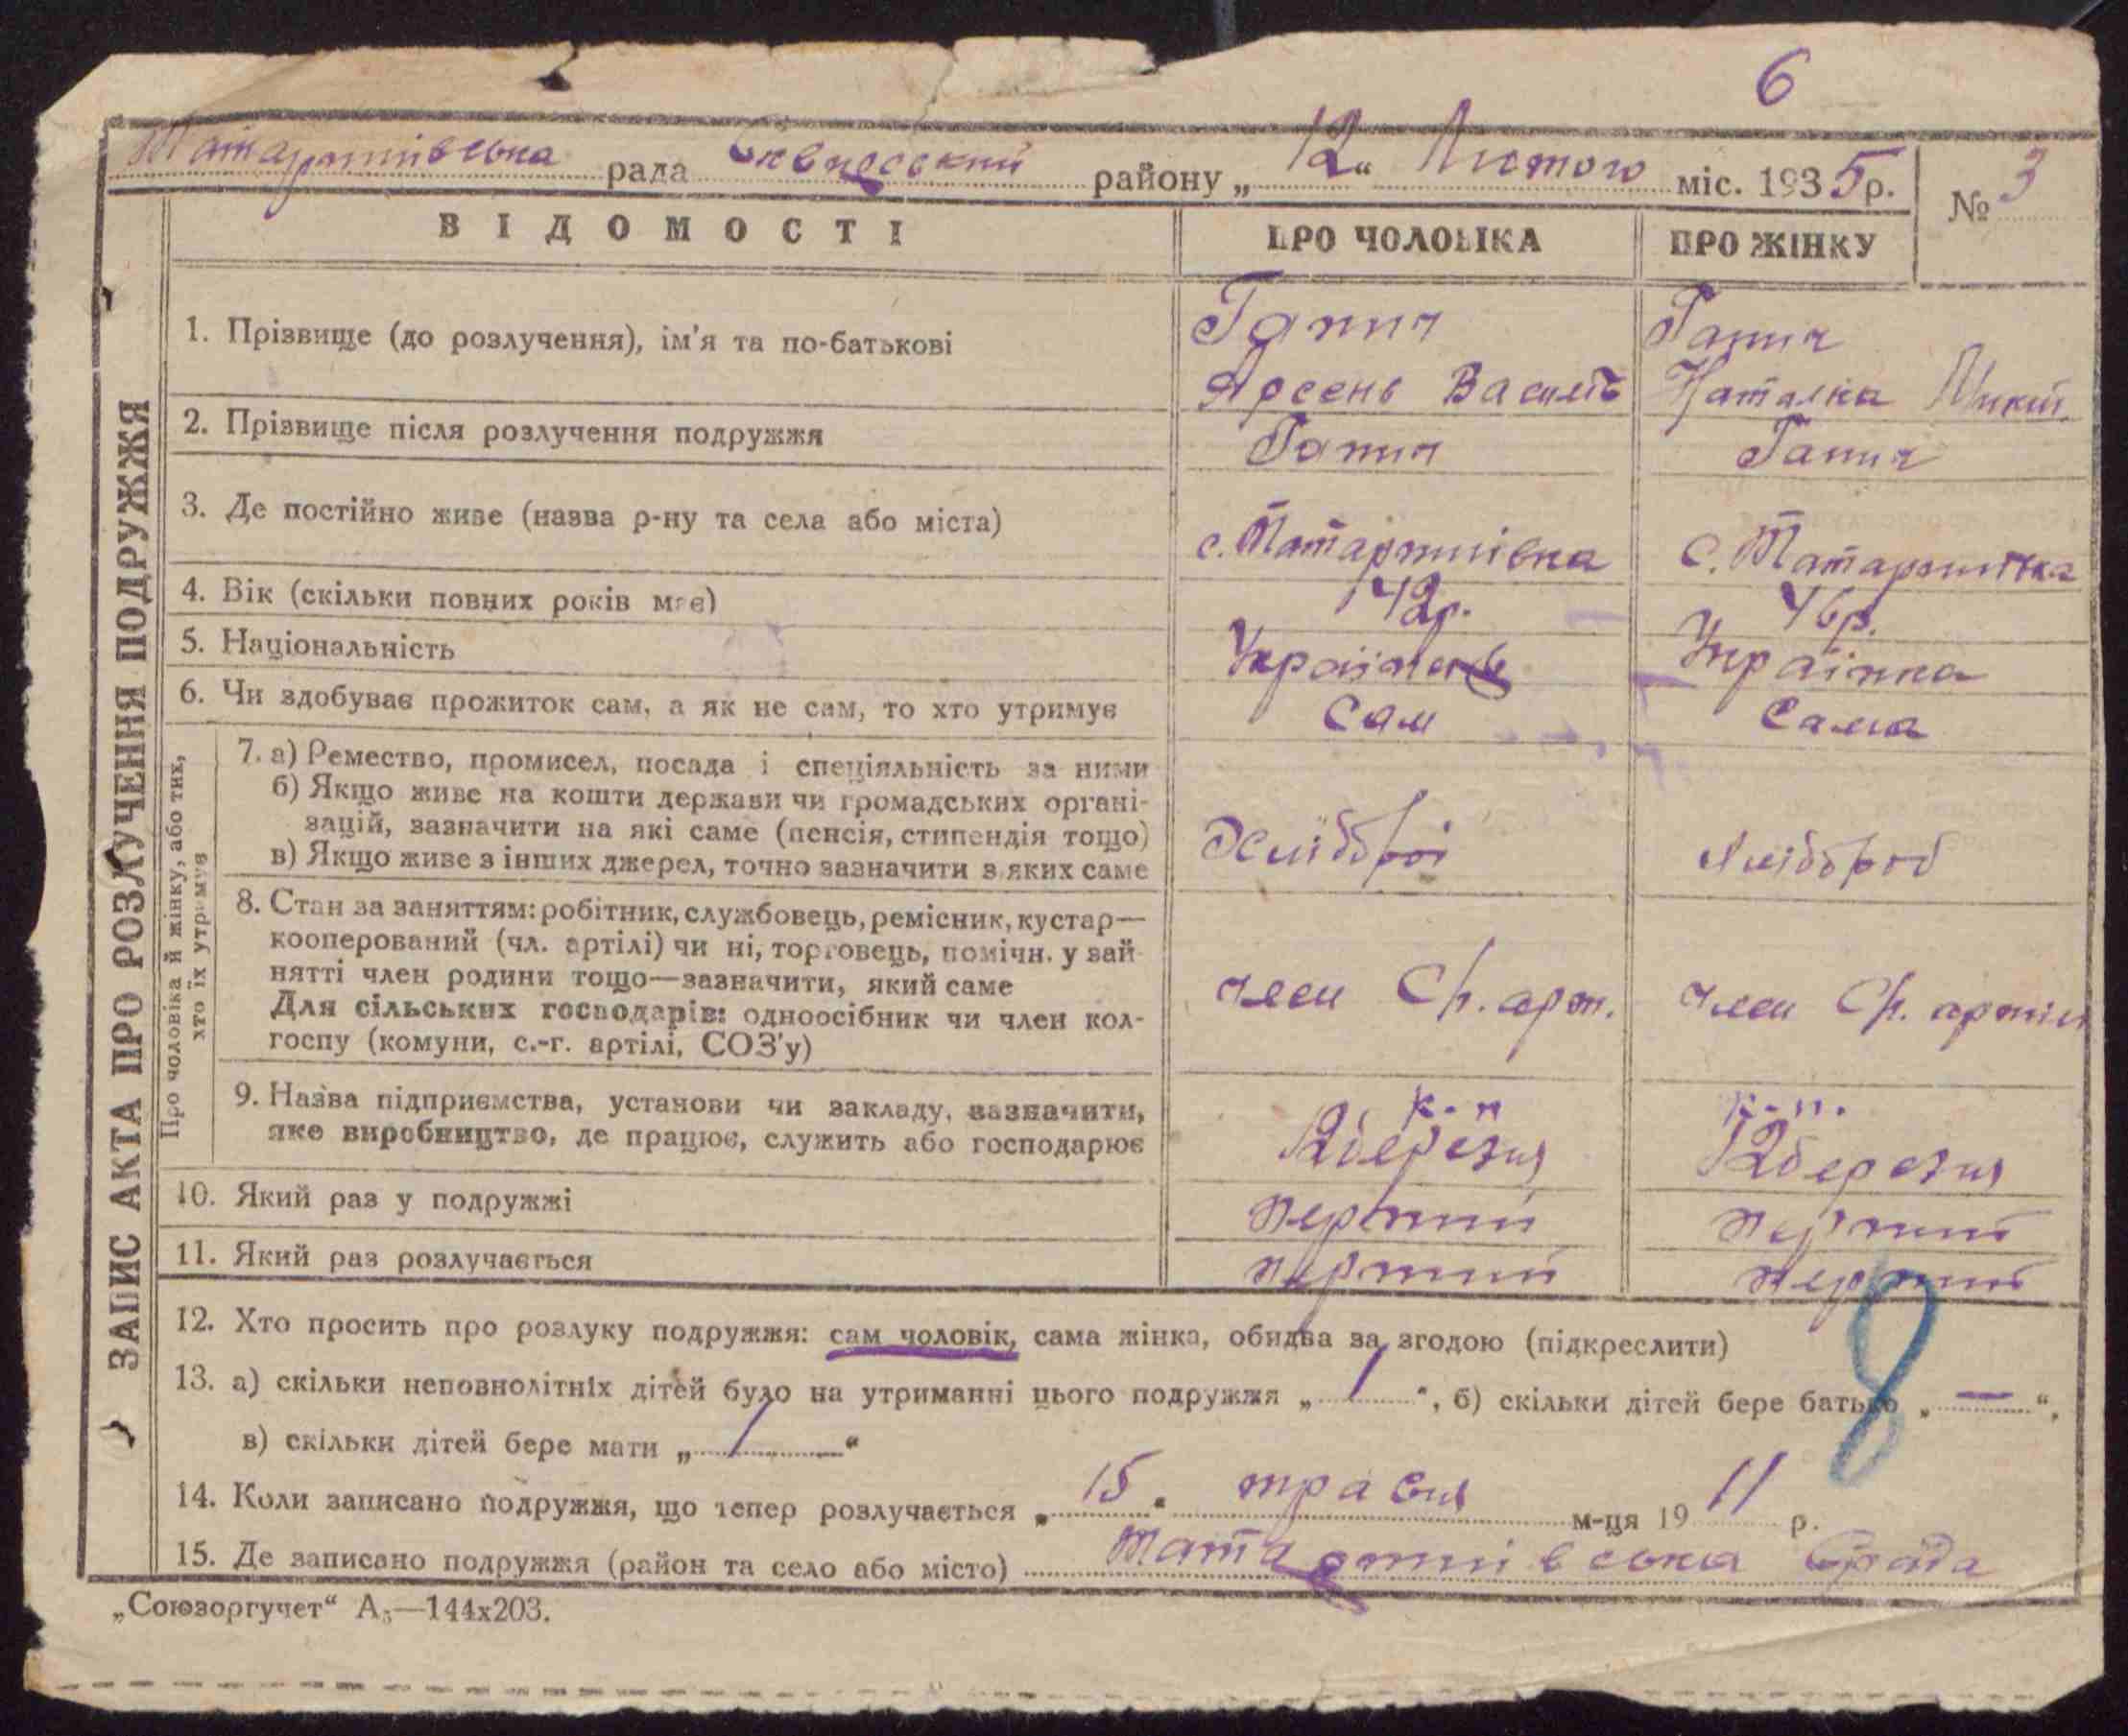 6
Татаринівська рада району „ 12 “ Лютого міс. 1935 р.
№ 3
ВІДОМОСТІ
ПРО ЧОЛОВІКА
ПРО ЖІНКУ
ЗАПИС АКТА ПРО РОЗЛУЧЕННЯ ПОДРУЖЖЯ
1. Прізвище (до розлучення), ім'я та по-батькові
Гапич
Арсень Василь
Гапич
Наталка Микит.
2. Прізвище після розлучення подружжя
Гапич
Гапич
3. Де постійно живе (назва р-ну та села або міста)
с. Татаринівка
с. Татаринівка
4. Вік (скільки повних років має)
42р.
46р.
5. Національність
Українець
Українка
6. Чи здобуває прожиток сам, а як не сам, то хто утримує
Сам
Сама
Про чоловіка й жінку, або тих,
хто їх утримує
7. а) Ремество, промисел, посада і спеціяльність за ними
б) Якщо живе на кошти держави чи громадських органі-
зацій, зазначити на які саме (пенсія, стипендія тощо)
в) Якщо живе з інших джерел, точно зазначити з яких саме
Хлібороб
Хлібороб
8. Стан за заняттям: робітник, службовець, ремісник, кустар—
кооперований (чл. артілі) чи ні, торговець, помічн. у зай-
нятті член родини тощо—зазначити, який саме
Для сільських господарів: одноосібник чи член кол-
госпу (комуни, с.-г. артілі, СОЗ'у)
член С/г. арт.
член С/г. артіл
9. Назва підприємства, установи чи закладу, зазначити,
яке виробництво, де працює, служить або господарює
12 березня
12 березня
10. Який раз у подружжі
перший
перший
11. Який раз розлучається
перший
перший
12. Хто просить про розлуку подружжя: сам чоловік, сама жінка, обидва за згодою (підкреслити)
8
13. а) скільки неповнолітніх дітей було на утриманні цього подружжя „ 1 “, б) скільки дітей бере батько „ — “,
в) скільки дітей бере мати „ 1 “
14. Коли записано подружжя, що тепер розлучається „ 15 “ травня м-ця 19 11 р.
15. Де записано подружжя (район та село або місто) Татаринівська
„Союзоргучет“ А₅—144х203.